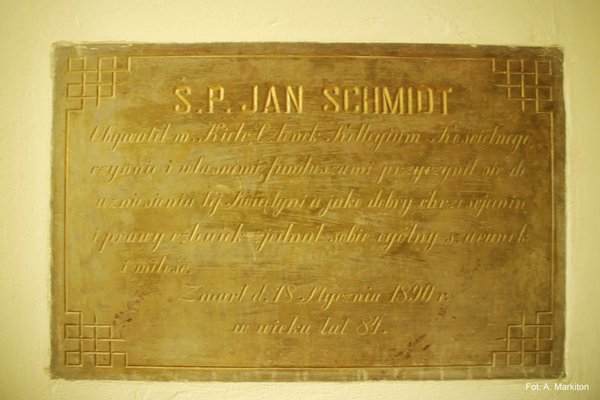 Ś.P. JAN SCHMIDT
Obywatel m. Kielc, Członek Kollegium Kościelnego,
czynnie i własnemi funduszami przyczynił się do
wzniesienia tej Świątyni a jako dobry chrześcjanin
i prawy człowiek zjednał sobie ogólny szacunek
i miłość.
Zmarł d. 18 Stycznia 1890 r.
w wieku lat 84.
Fot. A. Markiton